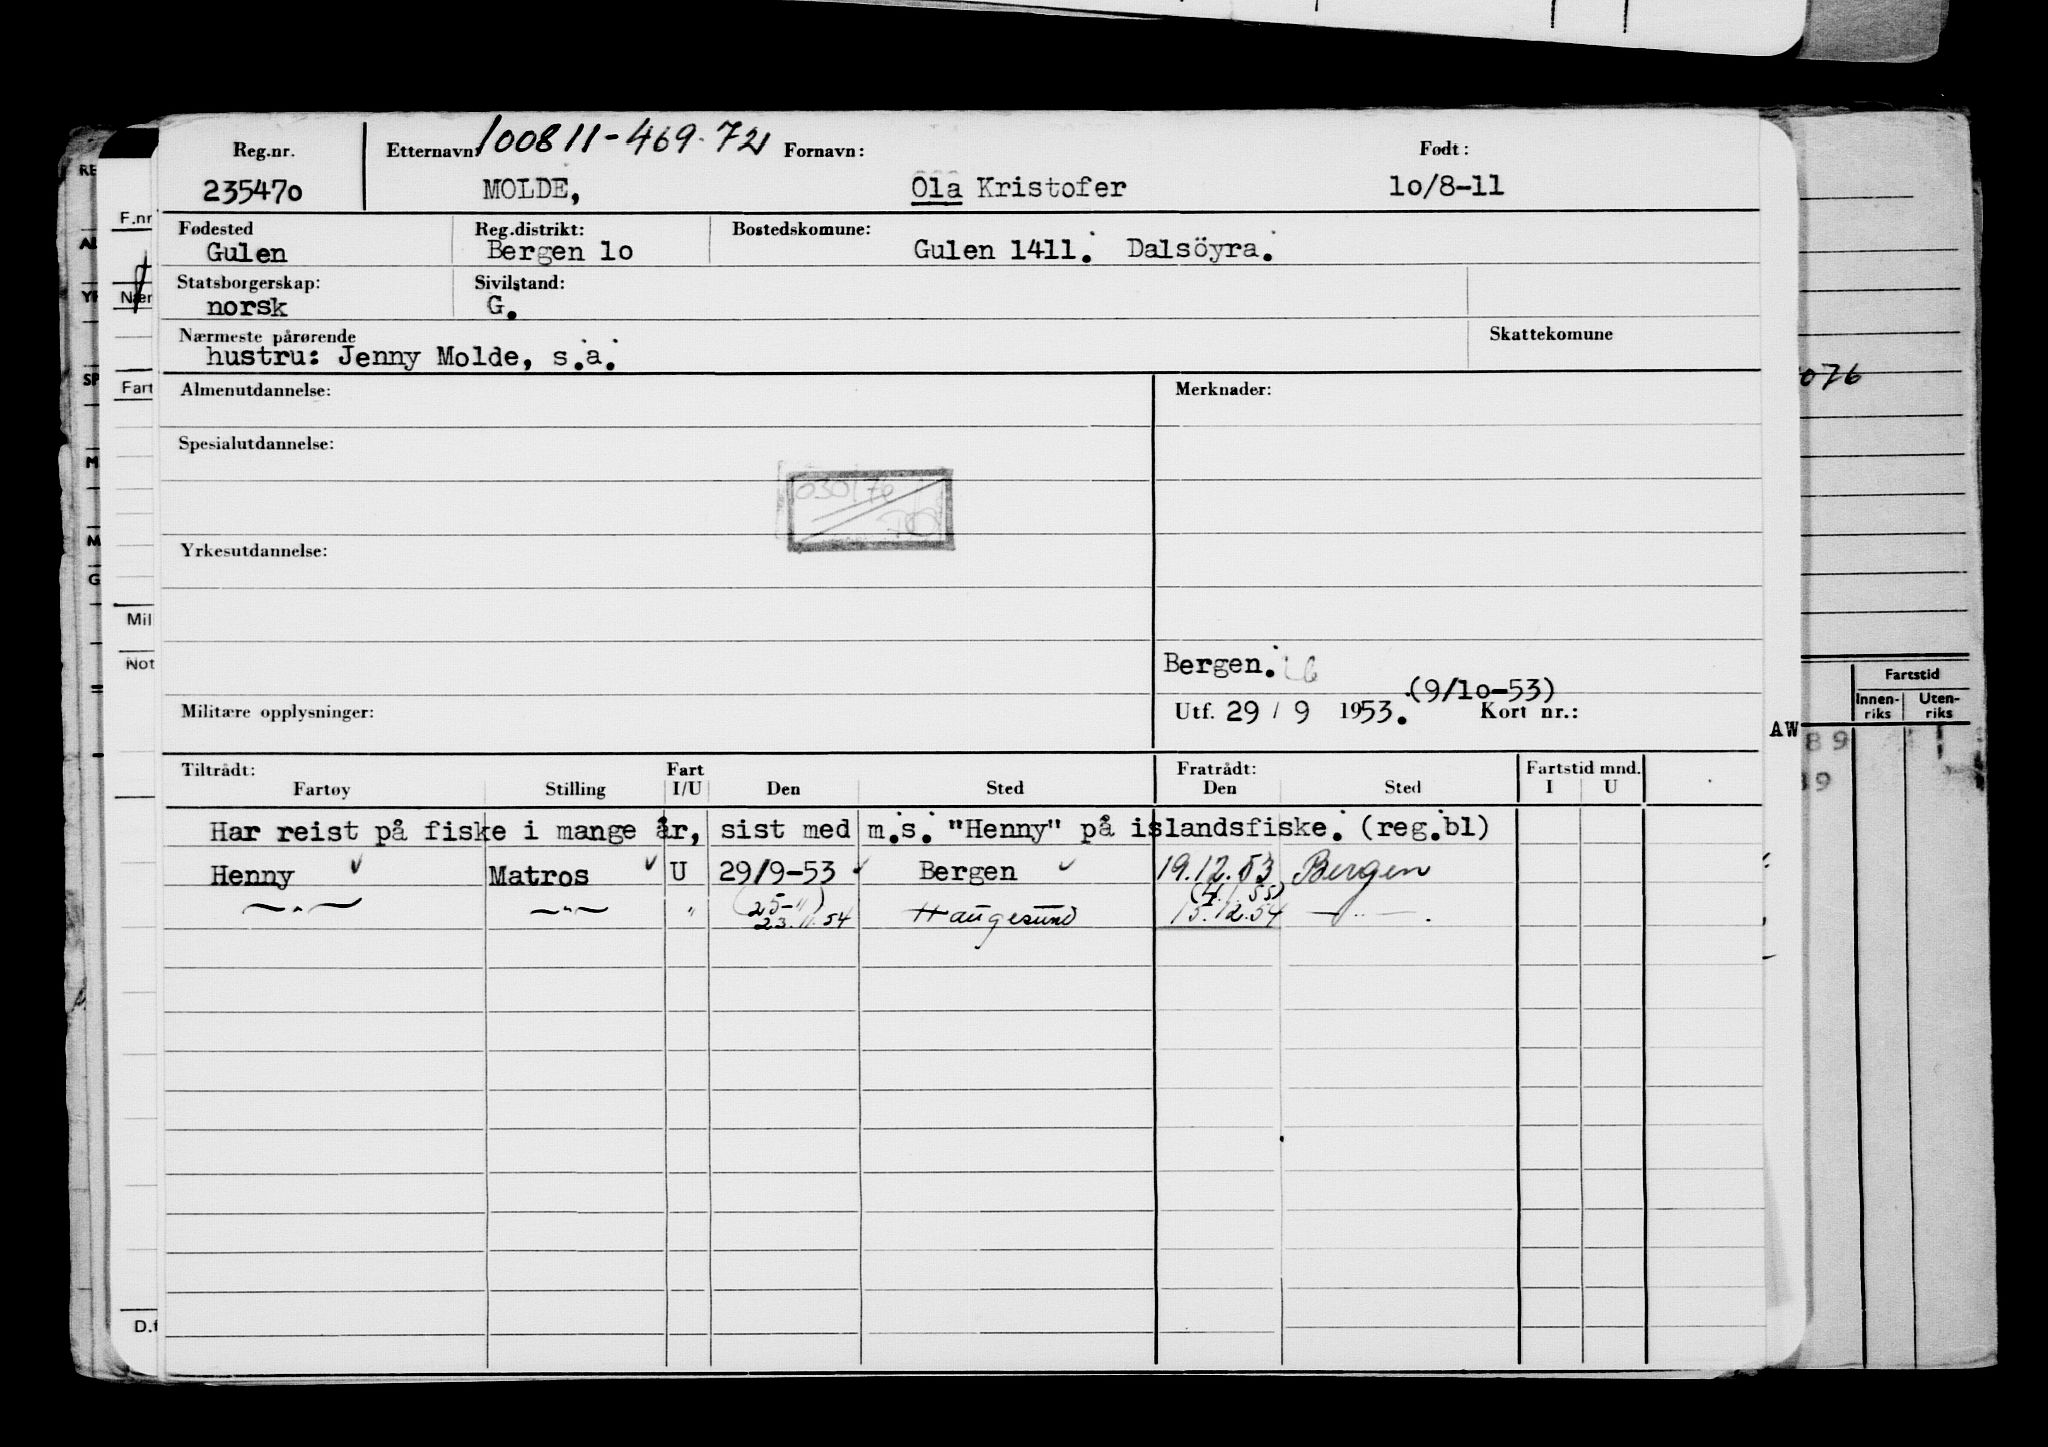 Reg.nr. Etternavn: 100811-469.72 Fornavn: Født:
235470 MOLDE, Ola Kristofer 10/8-11
Fødested Reg.distrikt: Bostedskomune:
Gulen Bergen 10 Gulen 1411. Dalsöyra.
Statsborgerskap: Sivilstand:
norsk G.
Nærmeste pårørende Skattekomune
hustru: Jenny Molde, s.a.
Almenutdannelse: Merknader:
Spesialutdannelse:
030176
Yrkesutdannelse:
Bergen.
(9/10-53)
Militære opplysninger: Utf. 29 / 9 1953. Kort nr.:
Tiltrådt: Fart Fratrådt: Fartstid mnd.
Fartøy Stilling I/U Den Sted Den Sted I U
Har reist på fiske i mange år, sist med m.s. "Henny" på islandsfiske. (reg.bl)
Henny Matros U 29/9-53 Bergen 19.12.53 Bergen
(25-") (4.1.55)
—"— —"— " 23.11.54 Haugesund 15.12.54 —"—.
F.nr
Nær
Fart
Mil
Not
D.f
RE
AL
YR
SP
M
M
G
076
Fartstid
Innen-riks Uten-riks
AW
89
39